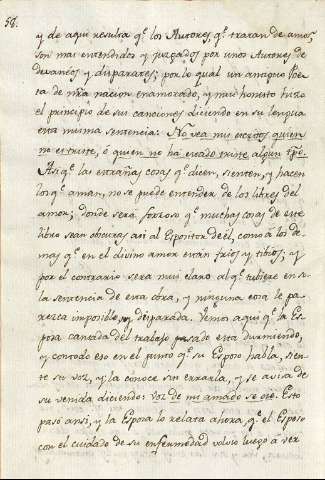 58.
y de aqui resulta q.e los Autores, q.e tratan de amor,
son mas entendidos y juzgados por unos Autores de
devaneos y disparates; por lo qual un antiguo Poe-
ta de nra nacion enamorado, y muy honesto hizo
el principio de sus canciones diciendo en su lengua
esta misma sentencia: No vea mis escritos quien
no es triste, ó quien no ha estado triste algun tpo.
Asi q.e las estrañas cosas q.e dicen, sienten, y hacen
los q.e aman, no se puede entender de los libres del
amor; donde será forzoso q.e muchas cosas de este
libro sean obscuras asi al Espositor de él, como á los de-
mas q.e en el divino amor están frios y tibios; y
por el contrario será muy claro al q.e tubiere en sí
la sentencia de esta obra, y ninguna cosa le pa-
rezca imposible, ni disparada. Vemos aqui q.e la Es-
posa cansada del trabajo pasado está durmiendo,
y con todo eso en el punto q.e su Esposo habla, sien-
te su voz, y la conoce sin errarla, y se avisa de
su venida diciendo: Voz de mi amado se oie. Esto
pasó ansi, y la Esposa lo relata ahora q.e el Esposo
con el cuidado de su enfermedad volvió luego á ver